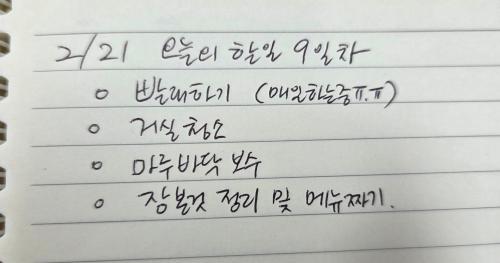 2/21 오늘의 할일 9일차
o 빨래하기 (매일하는중ㅠ.ㅠ)
o 거실청소
o 마루바닥 보수
o 장볼것 정리 및 메뉴짜기.